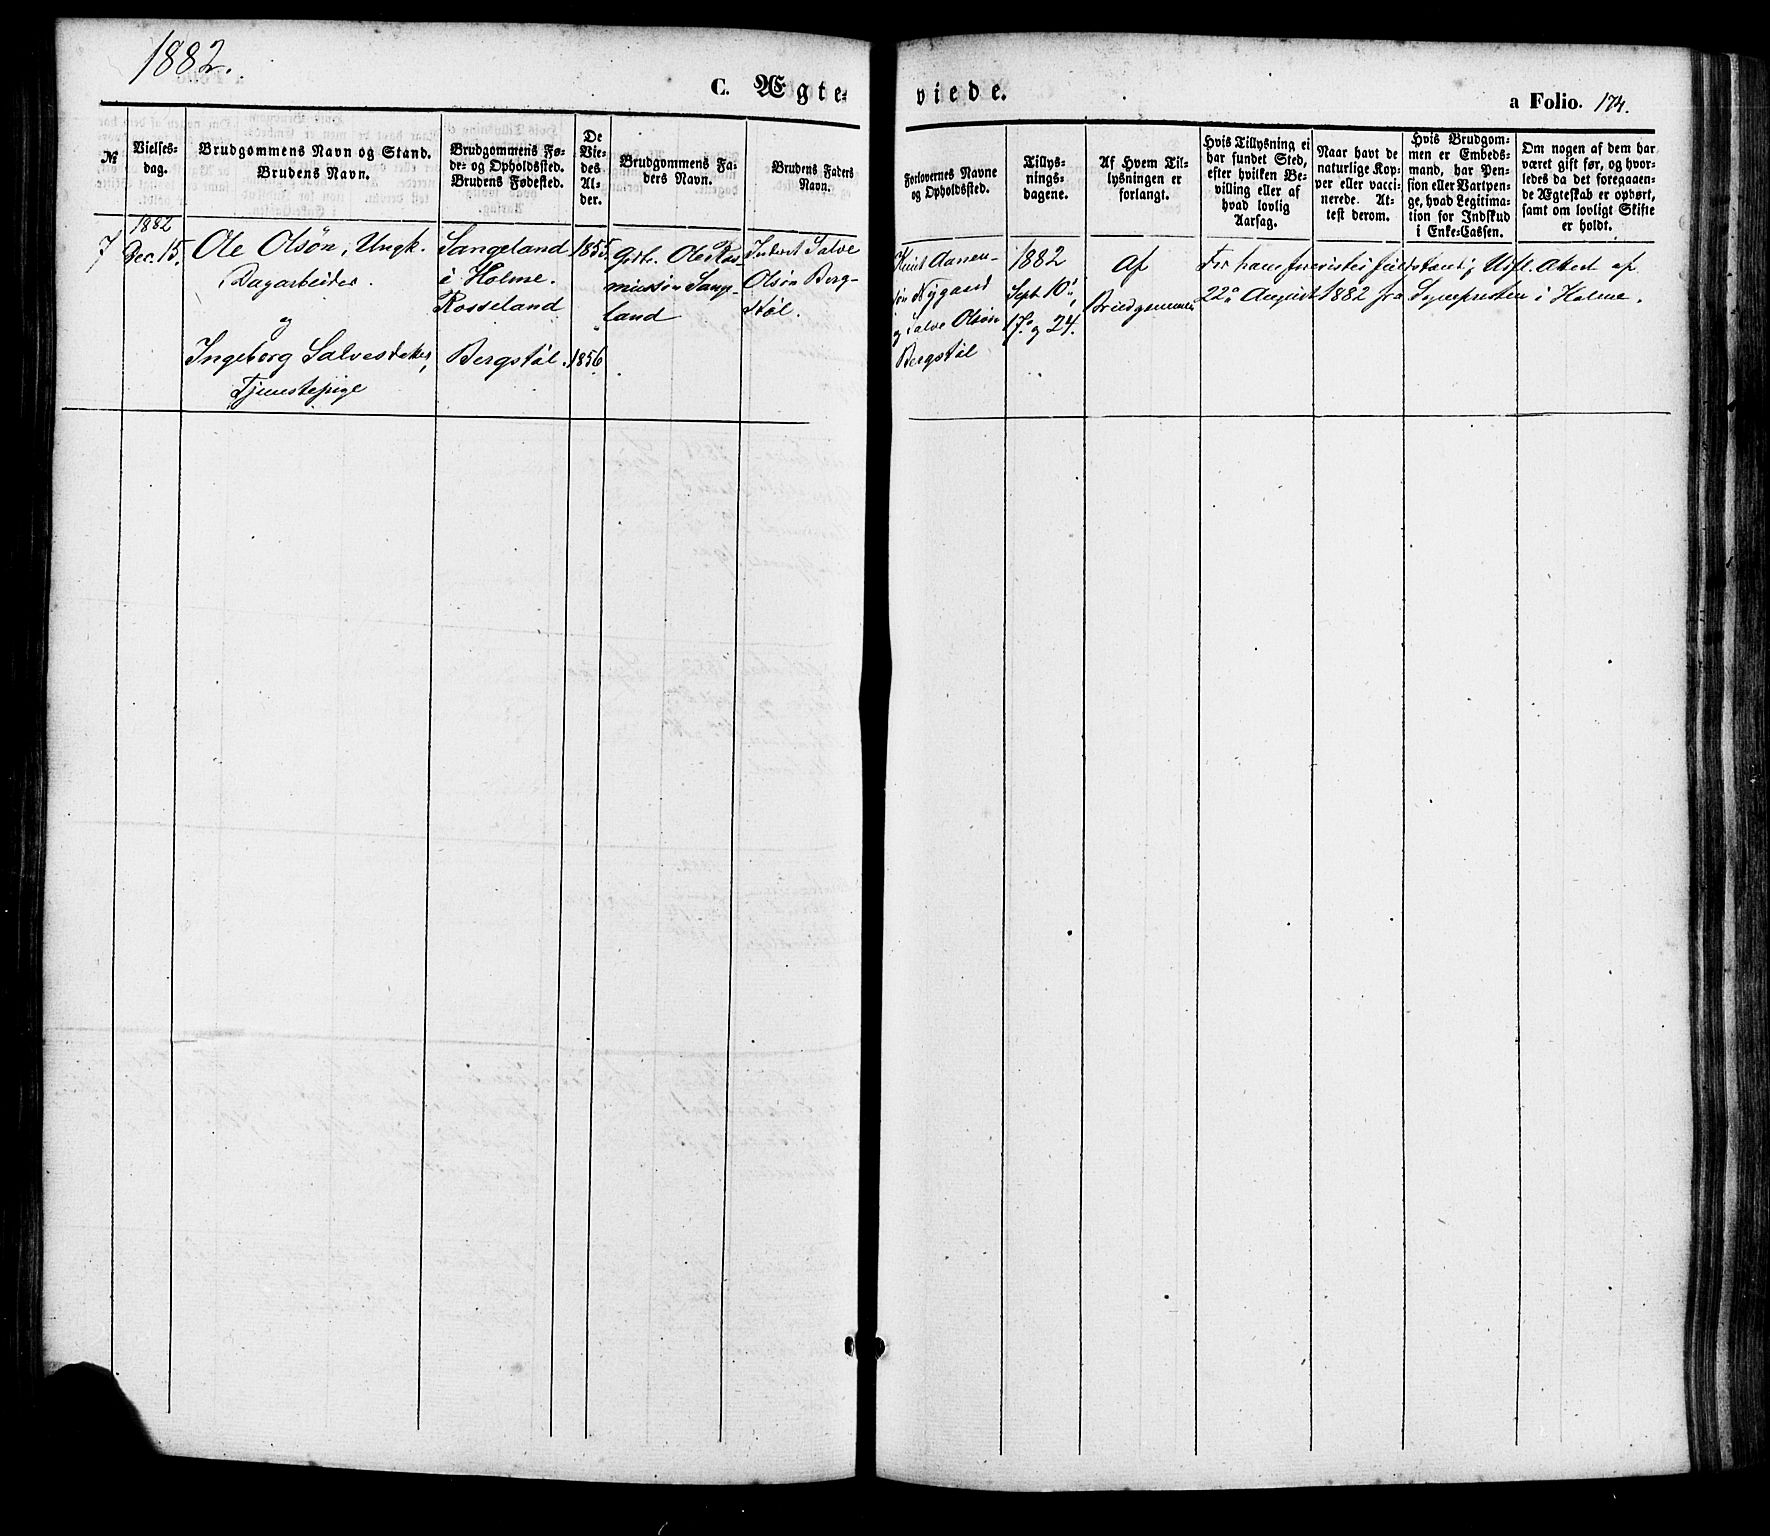 1882.
C. Ægte-
viede.
a Folio. 174.
№
Vielses-
dag.
Brudgommens Navn og Stand.
Brudens Navn.
Brudgommens Fø-
de- og Opholdssted.
Brudens Fødested.
De
Vie-
des
Al-
der.
Brudgommens Fa-
ders Navn.
Brudens Faders
Navn.
Forlovernes Navne
og Opholdssted.
Tillys-
nings-
dagene.
Af Hvem Til-
lysningen er
forlangt.
Hvis Tillysning ei
har fundet Sted,
efter hvilken Be-
villing eller af
hvad lovlig
Aarsag.
Naar havt de
naturlige Kop-
per eller vacci-
nerede. At-
test derom.
Hvis Brudgom-
men er Embeds-
mand, har Pen-
sion eller Vartpen-
ge, hvad Legitima-
tion for Indskud
i Enke-Cassen.
Om nogen af dem har
været gift før, og hvor-
ledes da det foregaaen-
de Ægteskab er ophørt,
samt om lovligt Skifte
er holdt.
7
1882
Dec. 15.
Ole Olsøn, Ungk.
Dagarbeider.
og
Ingeborg Salvesdatter,
Tjenestepige
Sangeland
i Holme.
Rosseland
Bergstøl.
1855.
1856
Gbr. Ole Ras-
mussøn Sange-
land
Salve
Olsøn Berg-
støl.
Knut Aanen-
søn Nygaard
og Salve Olsøn
Bergstøl
1882
Sept. 10de,
17de og 24.
Af
Brudgommen
For ham Attest af
22de August 1882 fra Sognepresten i Holme.